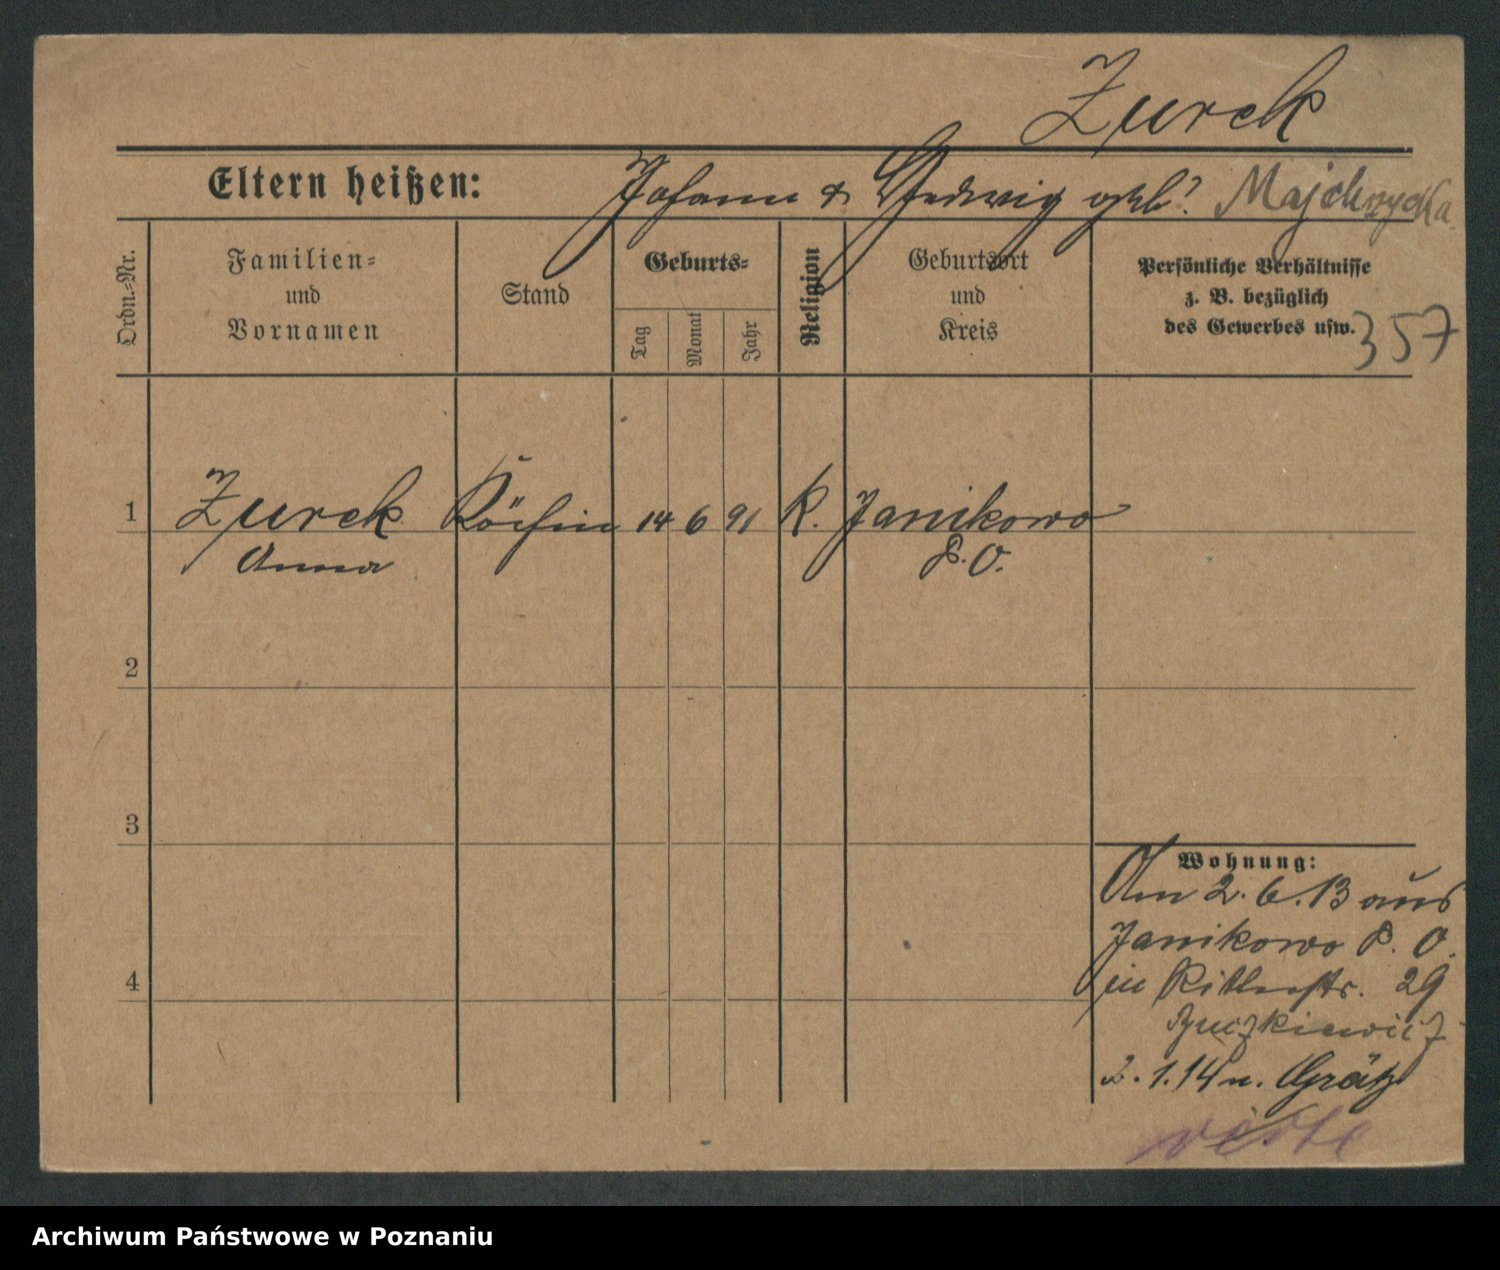 Zurek
Eltern heißen: Johann & Hedwig geb? Majchrzycka
Ordn.-Nr.
Familien-
und
Vornamen
Stand
Geburts-
Tag
Monat
Jahr
Religion
Geburtsort
und
Kreis
Persönliche Verhältnisse
z. B. bezüglich
des Gewerbes usw.
357
1 Zurek Köchin 14 6 91 K. Janikowo
Anna P. O.
2
3
4
Wohnung:
Am 2. 6. 13 aus
Janikowo P. O.
in Ritterstr. 29
2. 1. 14 n. Grätz
Archiwum Państwowe w Poznaniu